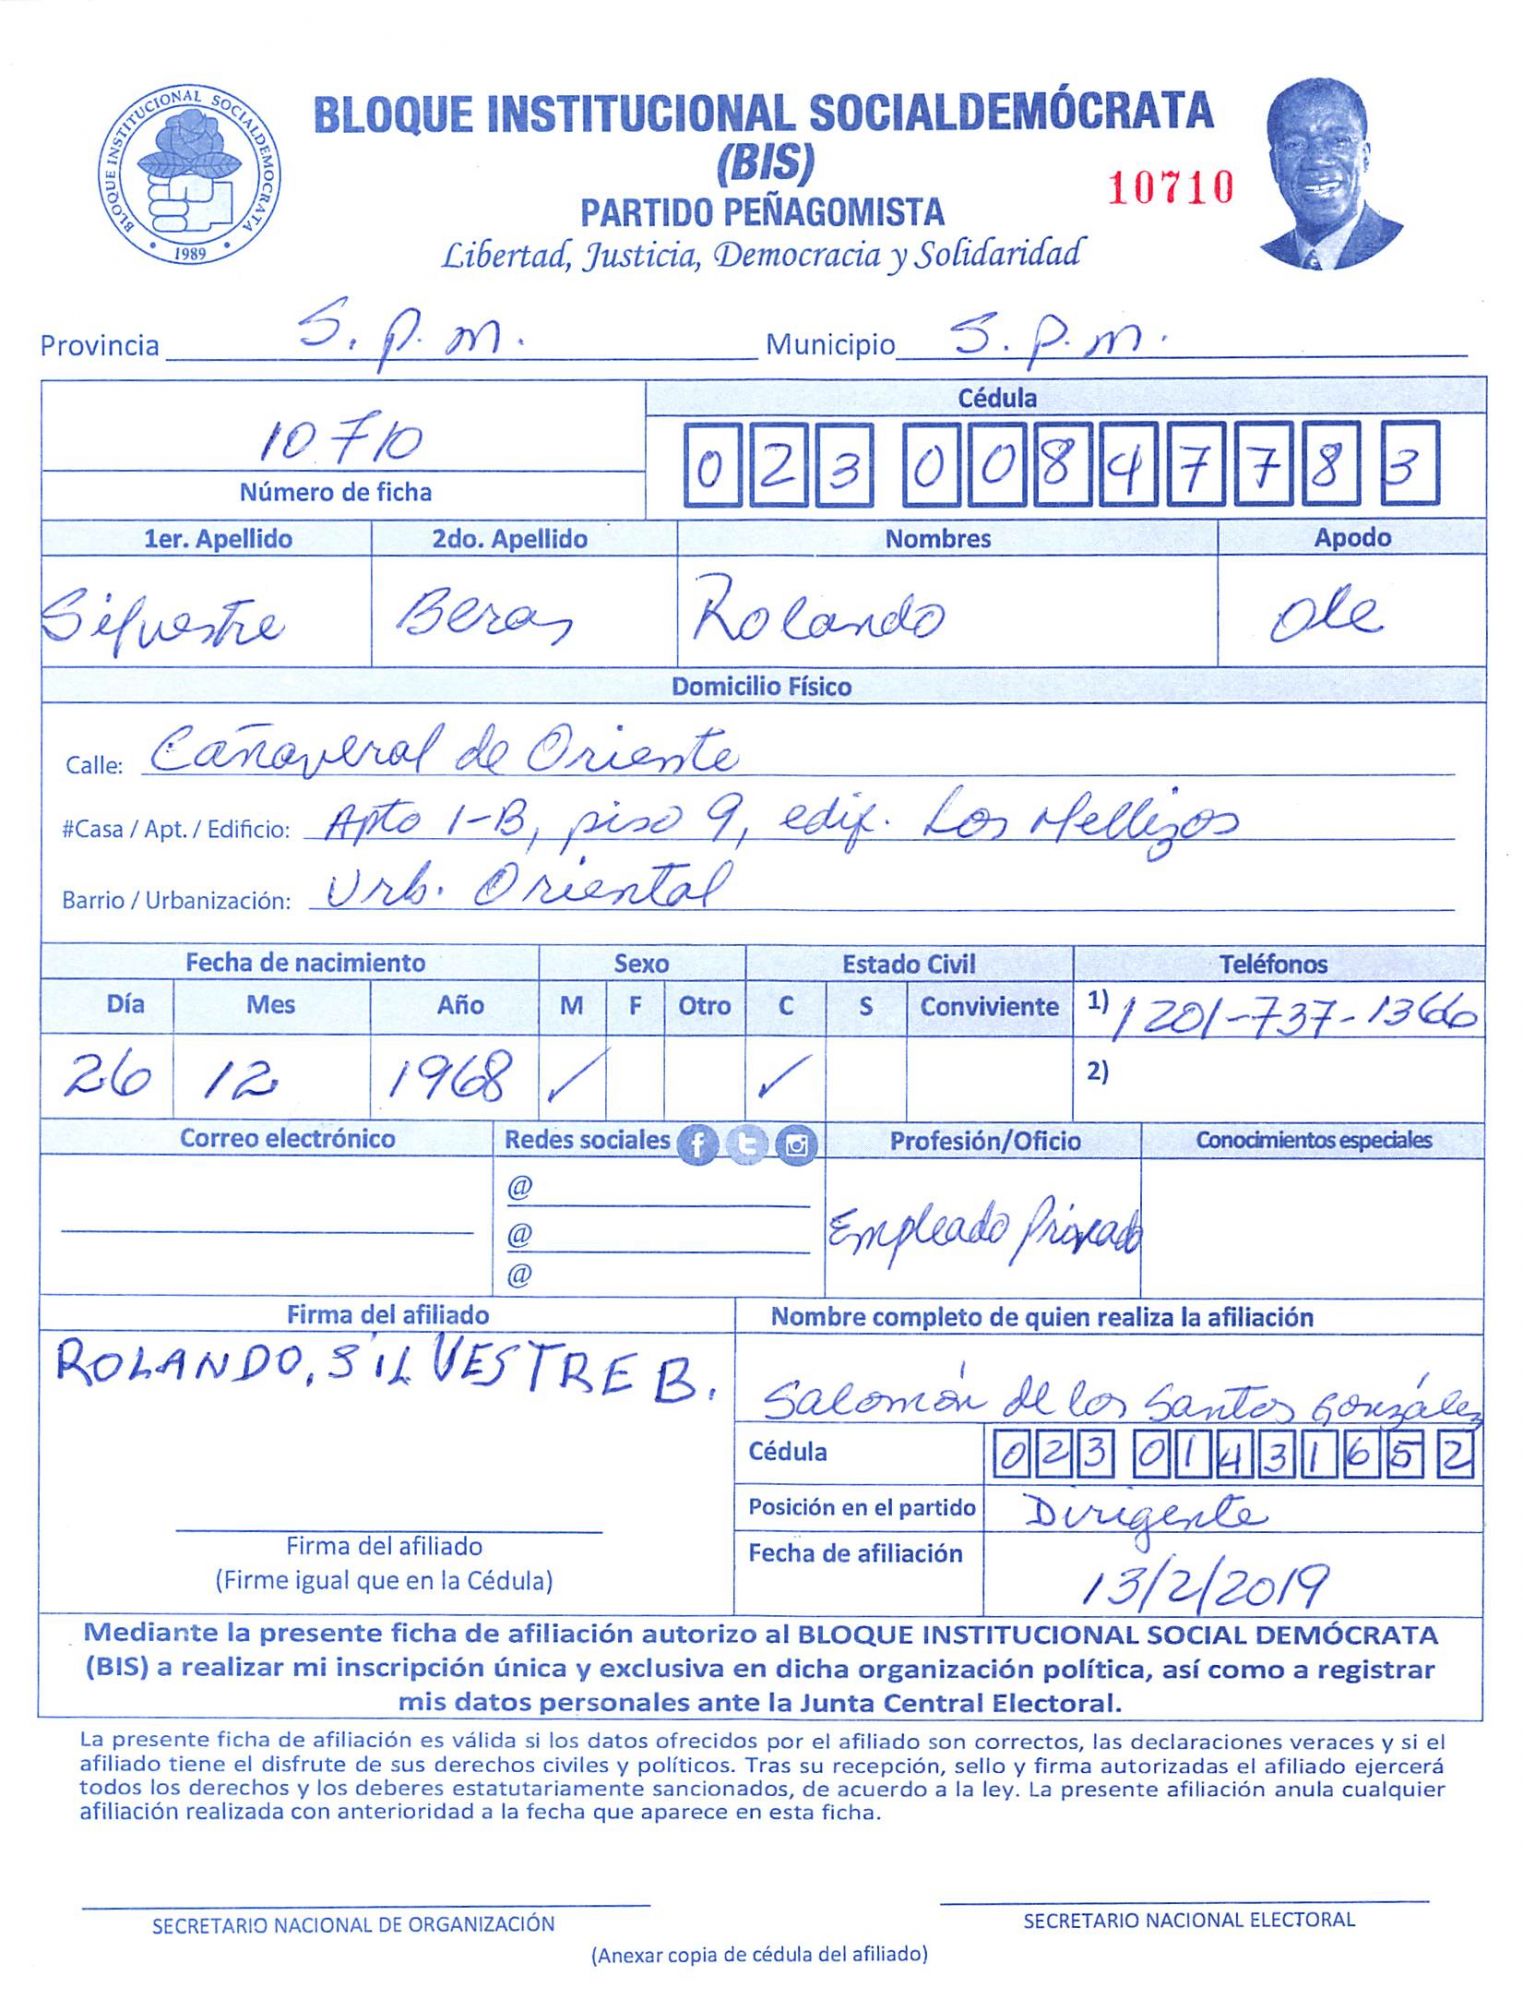 BLOQUE INSTITUCIONAL SOCIALDEMOCRATA
1989
BLOQUE INSTITUCIONAL SOCIALDEMÓCRATA
(BIS)
PARTIDO PEÑAGOMISTA
10710
Libertad, Justicia, Democracia y Solidaridad
Provincia S. P. M. Municipio S. P. M.
10710
Número de ficha
Cédula
023 0084778 3
1er. Apellido 2do. Apellido Nombres Apodo
Silvestre Beras Rolando Ole
Domicilio Físico
Calle: Cañaveral de Oriente
#Casa / Apt. / Edificio: Apto 1-B, piso 9, edif. Los Mellizos
Barrio / Urbanización: Urb. Oriental
Fecha de nacimiento Sexo Estado Civil Teléfonos
Día Mes Año M F Otro C S Conviviente 1) 1 201-737-1366
26 12 1968 ✓ ✓ 2)
Correo electrónico Redes sociales Profesión/Oficio Conocimientos especiales
@
@
@
Empleado Privado
Firma del afiliado Nombre completo de quien realiza la afiliación
ROLANDO. SILVESTRE B.
Salomón de los Santos González
Cédula 023 0143165 2
Posición en el partido Dirigente
Firma del afiliado
(Firme igual que en la Cédula)
Fecha de afiliación 13/2/2019
Mediante la presente ficha de afiliación autorizo al BLOQUE INSTITUCIONAL SOCIAL DEMÓCRATA
(BIS) a realizar mi inscripción única y exclusiva en dicha organización política, así como a registrar
mis datos personales ante la Junta Central Electoral.
La presente ficha de afiliación es válida si los datos ofrecidos por el afiliado son correctos, las declaraciones veraces y si el
afiliado tiene el disfrute de sus derechos civiles y políticos. Tras su recepción, sello y firma autorizadas el afiliado ejercerá
todos los derechos y los deberes estatutariamente sancionados, de acuerdo a la ley. La presente afiliación anula cualquier
afiliación realizada con anterioridad a la fecha que aparece en esta ficha.
SECRETARIO NACIONAL DE ORGANIZACIÓN SECRETARIO NACIONAL ELECTORAL
(Anexar copia de cédula del afiliado)